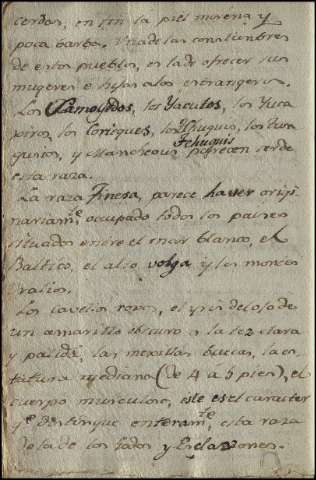 cerdas, en fin la piel morena y
poca barba. Una de las constumbres
de estos pueblos, es la de ofrecer sus
mugeres e hijas a los estrangeros.
Los Samoiedos, los Yacutos, los Yuca
giros, los Coriques, los Tchuquis, los Tun
Tchuquis
gusios, y Mancheous parecen ser de
esta raza.
La raza Finesa, parece haver origi
nariamte. ocupado todos los paises
situados entre el mar blanco, el
Baltico, el alto volga y los montes
ralios.
Los cavellos roxos, el yris del ojo de
un amarillo obscuro, la tez clara
y palida, las mexillas huecas, la es
tatura mediana (de 4 a 5 pies), el
cuerpo musculoso, este es el caracter
qe. destingue enteramte. esta raza
de la de los Godos y Esclavones.